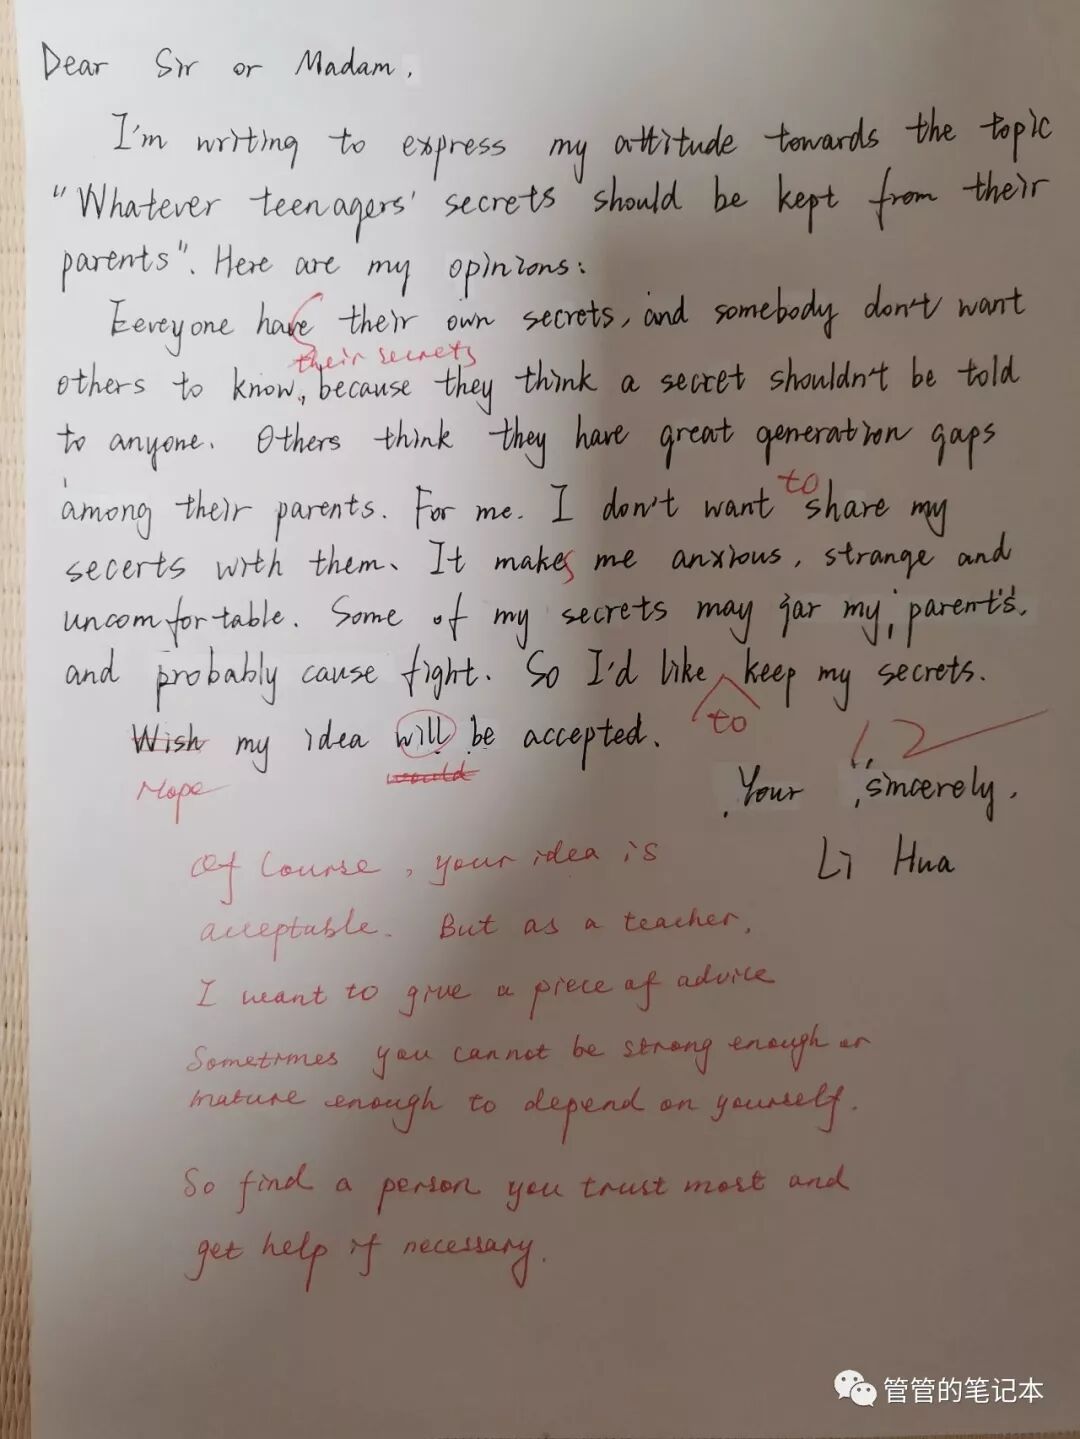 Dear Sir or Madam,
I'm writing to express my attitude towards the topic
"Whatever teenagers' secrets should be kept from their
parents". Here are my opinions:
Eeveyone have their own secrets, and somebody don't want
their secrets
others to know, because they think a secret shouldn't be told
to anyone. Others think they have great generation gaps
to
among their parents. For me. I don't want share my
secerts with them. It makes me anxious, strange and
uncomfortable. Some of my secrets may jar my parent's,
and probably cause fight. So I'd like keep my secrets.
to
Wish my idea will be accepted.
Hope would
12
Your sincerely,
Li Hua
Of course, your idea is
acceptable. But as a teacher,
I want to give a piece of advice
Sometimes you cannot be strong enough or
mature enough to depend on yourself.
So find a person you trust most and
get help if necessary.
管管的笔记本